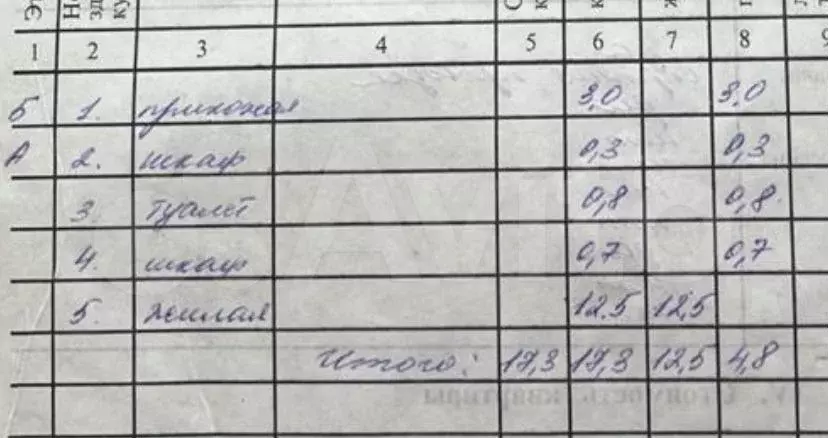 1 2 3 4 5 6 7 8 9
Б 1. прихожая 3,0 3,0
А 2. шкаф 0,3 0,3
3. туалет 0,8 0,8
4. шкаф 0,7 0,7
5. жилая 12.5 12,5
Итого: 17,3 17,3 12,5 4,8